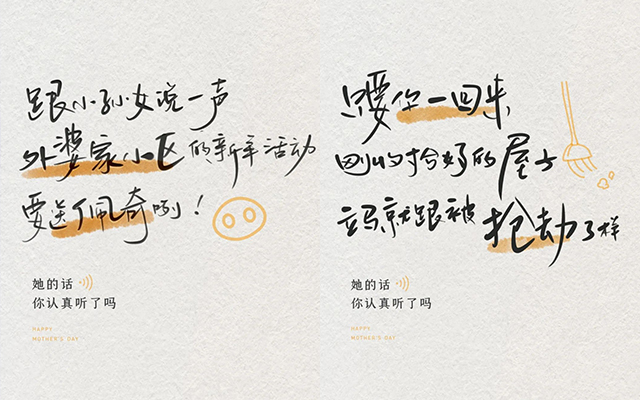 跟小孙女说一声
外婆家小区的新年活动
要送佩奇咧!
她的话
你认真听了吗
HAPPY
MOTHER'S DAY
只要你一回来
刚收拾好的屋子
立马就跟被抢劫了样
她的话
你认真听了吗
HAPPY
MOTHER'S DAY